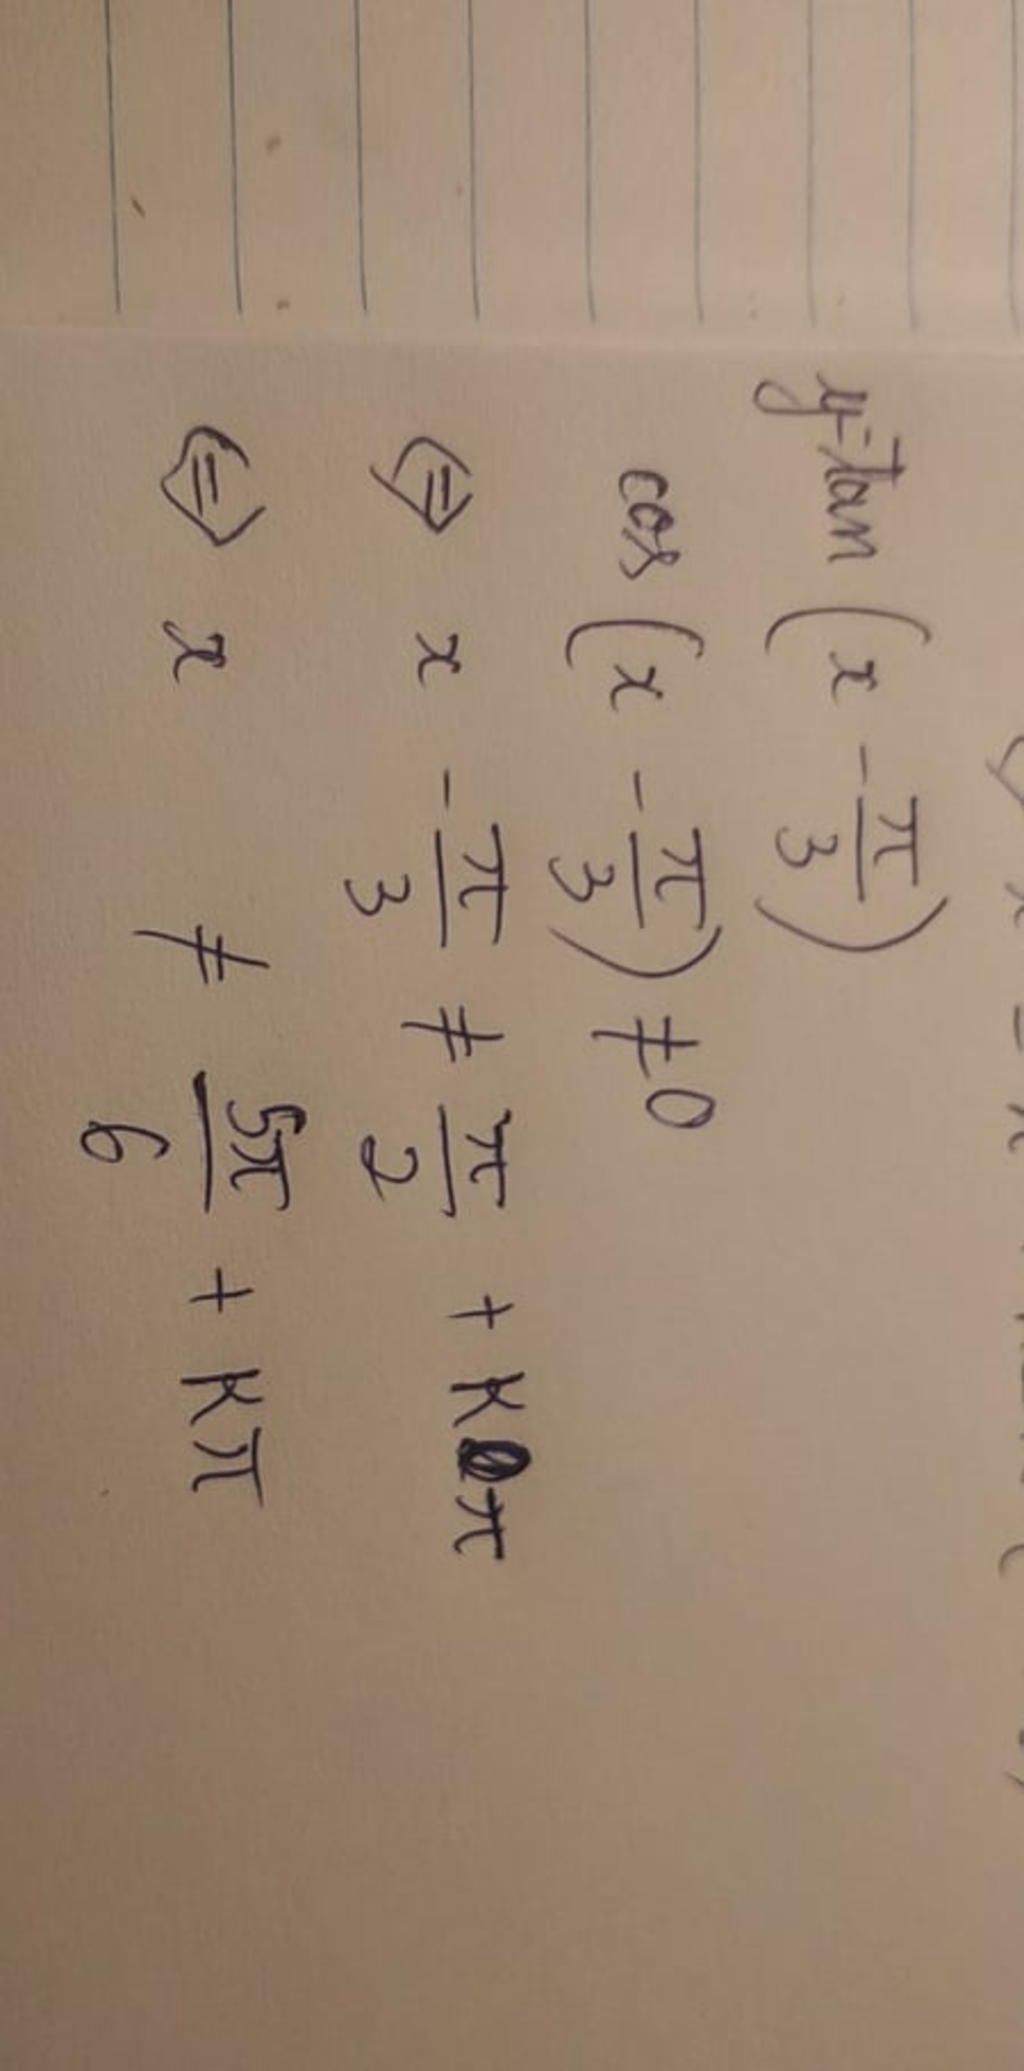 y=tan(x - π/3)
cos(x - π/3) ≠ 0
⇔ x - π/3 ≠ π/2 + Kπ
⇔ x ≠ 5π/6 + Kπ